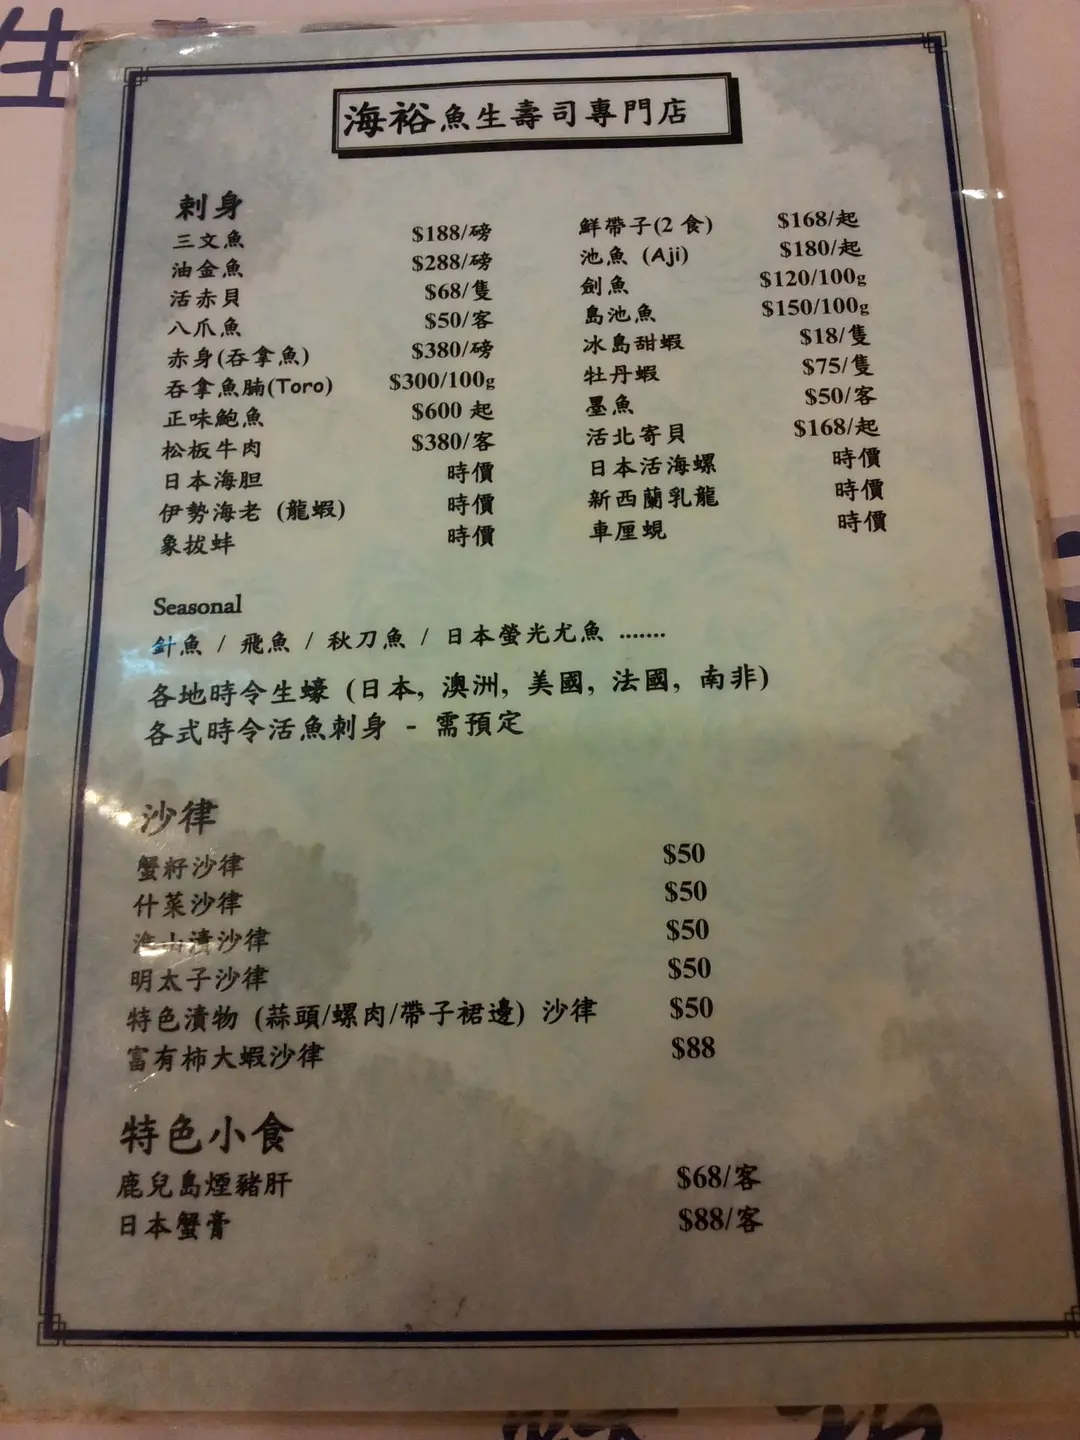 海裕魚生壽司專門店
刺身
三文魚 $188/磅
油金魚 $288/磅
活赤貝 $68/隻
八爪魚 $50/客
赤身(吞拿魚) $380/磅
吞拿魚腩(Toro) $300/100g
正味鮑魚 $600 起
松板牛肉 $380/客
日本海胆 時價
伊勢海老 (龍蝦) 時價
象拔蚌 時價
鮮帶子(2 食) $168/起
池魚 (Aji) $180/起
劍魚 $120/100g
島池魚 $150/100g
冰島甜蝦 $18/隻
牡丹蝦 $75/隻
墨魚 $50/客
活北寄貝 $168/起
日本活海螺 時價
新西蘭乳龍 時價
車厘蜆 時價
Seasonal
針魚 / 飛魚 / 秋刀魚 / 日本螢光尤魚 .......
各地時令生蠔 (日本, 澳洲, 美國, 法國, 南非)
各式時令活魚刺身 - 需預定
沙律
蟹籽沙律 $50
什菜沙律 $50
淮山漬沙律 $50
明太子沙律 $50
特色漬物 (蒜頭/螺肉/帶子裙邊) 沙律 $50
富有柿大蝦沙律 $88
特色小食
鹿兒島煙豬肝 $68/客
日本蟹膏 $88/客
生